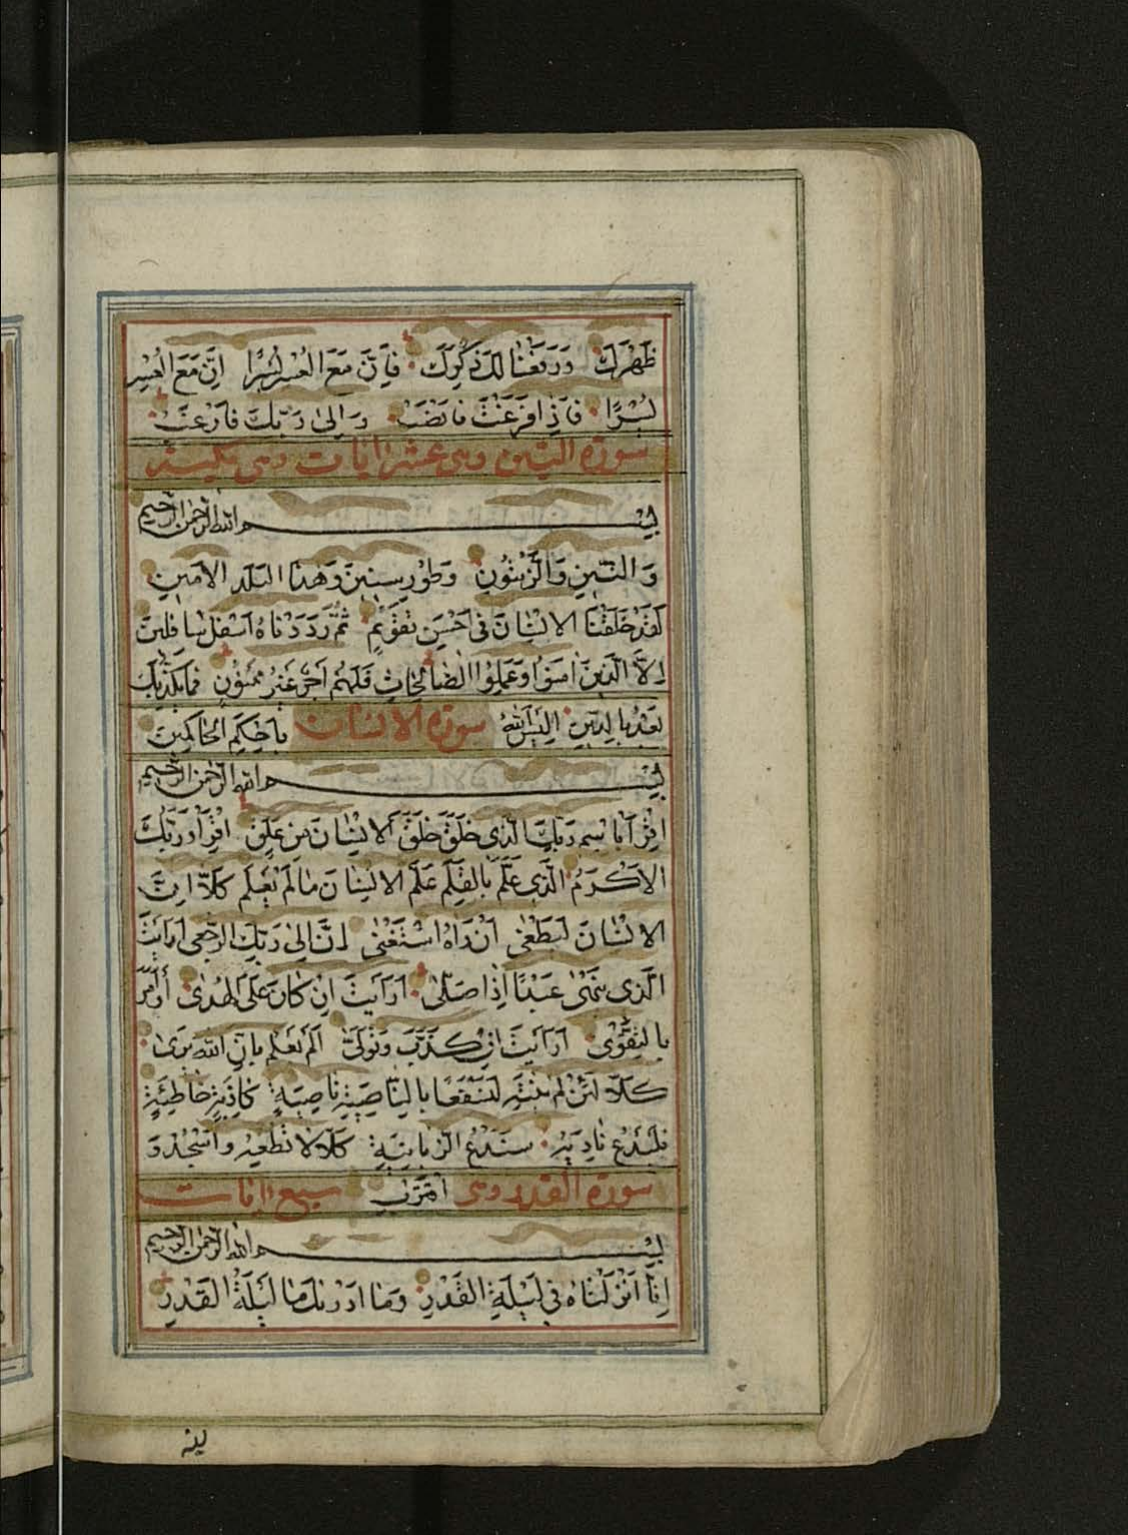 ظَهْرَكَ وَرَفَعْنَا لَكَ ذِكْرَكَ فَاِنَّ مَعَ الْعُسْرِ يُسْرًا اِنَّ مَعَ الْعُسْرِ
يُسْرًا فَاِذَا فَرَغْتَ فَانْصَبْ وَاِلٰى رَبِّكَ فَارْغَبْ
سورة التين وهى عشر ايات وهى مكية
بِسْمِ اللّٰه الرَّحْمٰن الرَّحيم
وَالتِّينِ وَالزَّيْتُونِ وَطُورِ سِينِينَ وَهٰذَا الْبَلَدِ الْاَمِينِ
لَقَدْ خَلَقْنَا الْاِنْسَانَ فِى اَحْسَنِ تَقْوِيمٍ ثُمَّ رَدَدْنَاهُ اَسْفَلَ سَافِلِينَ
اِلَّا الَّذِينَ اٰمَنُوا وَعَمِلُوا الصَّالِحَاتِ فَلَهُمْ اَجْرٌ غَيْرُ مَمْنُونٍ فَمَا يُكَذِّبُكَ
بَعْدُ بِالدِّينِ اَلَيْسَ اللّٰهُ سورة الانسان بِاَحْكَمِ الْحَاكِمِينَ
بِسْمِ اللّٰه الرَّحْمٰن الرَّحيم
اِقْرَأْ بِاسْمِ رَبِّكَ الَّذِى خَلَقَ خَلَقَ الْاِنْسَانَ مِنْ عَلَقٍ اِقْرَأْ وَرَبُّكَ
الْاَكْرَمُ الَّذِى عَلَّمَ بِالْقَلَمِ عَلَّمَ الْاِنْسَانَ مَا لَمْ يَعْلَمْ كَلَّا اِنَّ
الْاِنْسَانَ لَيَطْغٰى اَنْ رَاٰهُ اسْتَغْنٰى اِنَّ اِلٰى رَبِّكَ الرُّجْعٰى اَرَاَيْتَ
الَّذِى يَنْهٰى عَبْدًا اِذَا صَلّٰى اَرَاَيْتَ اِنْ كَانَ عَلَى الْهُدٰى اَوْ اَمَرَ
بِالتَّقْوٰى اَرَاَيْتَ اِنْ كَذَّبَ وَتَوَلّٰى اَلَمْ يَعْلَمْ بِاَنَّ اللّٰهَ يَرٰى
كَلَّا لَئِنْ لَمْ يَنْتَهِ لَنَسْفَعًا بِالنَّاصِيَةِ نَاصِيَةٍ كَاذِبَةٍ خَاطِئَةٍ
فَلْيَدْعُ نَادِيَهُ سَنَدْعُ الزَّبَانِيَةَ كَلَّا لَا تُطِعْهُ وَاسْجُدْ وَ
سورة القدر وهى اقْتَرِبْ سبع ايات
بِسْمِ اللّٰه الرَّحْمٰن الرَّحيم
اِنَّا اَنْزَلْنَاهُ فِى لَيْلَةِ الْقَدْرِ وَمَا اَدْرٰيكَ مَا لَيْلَةُ الْقَدْرِ